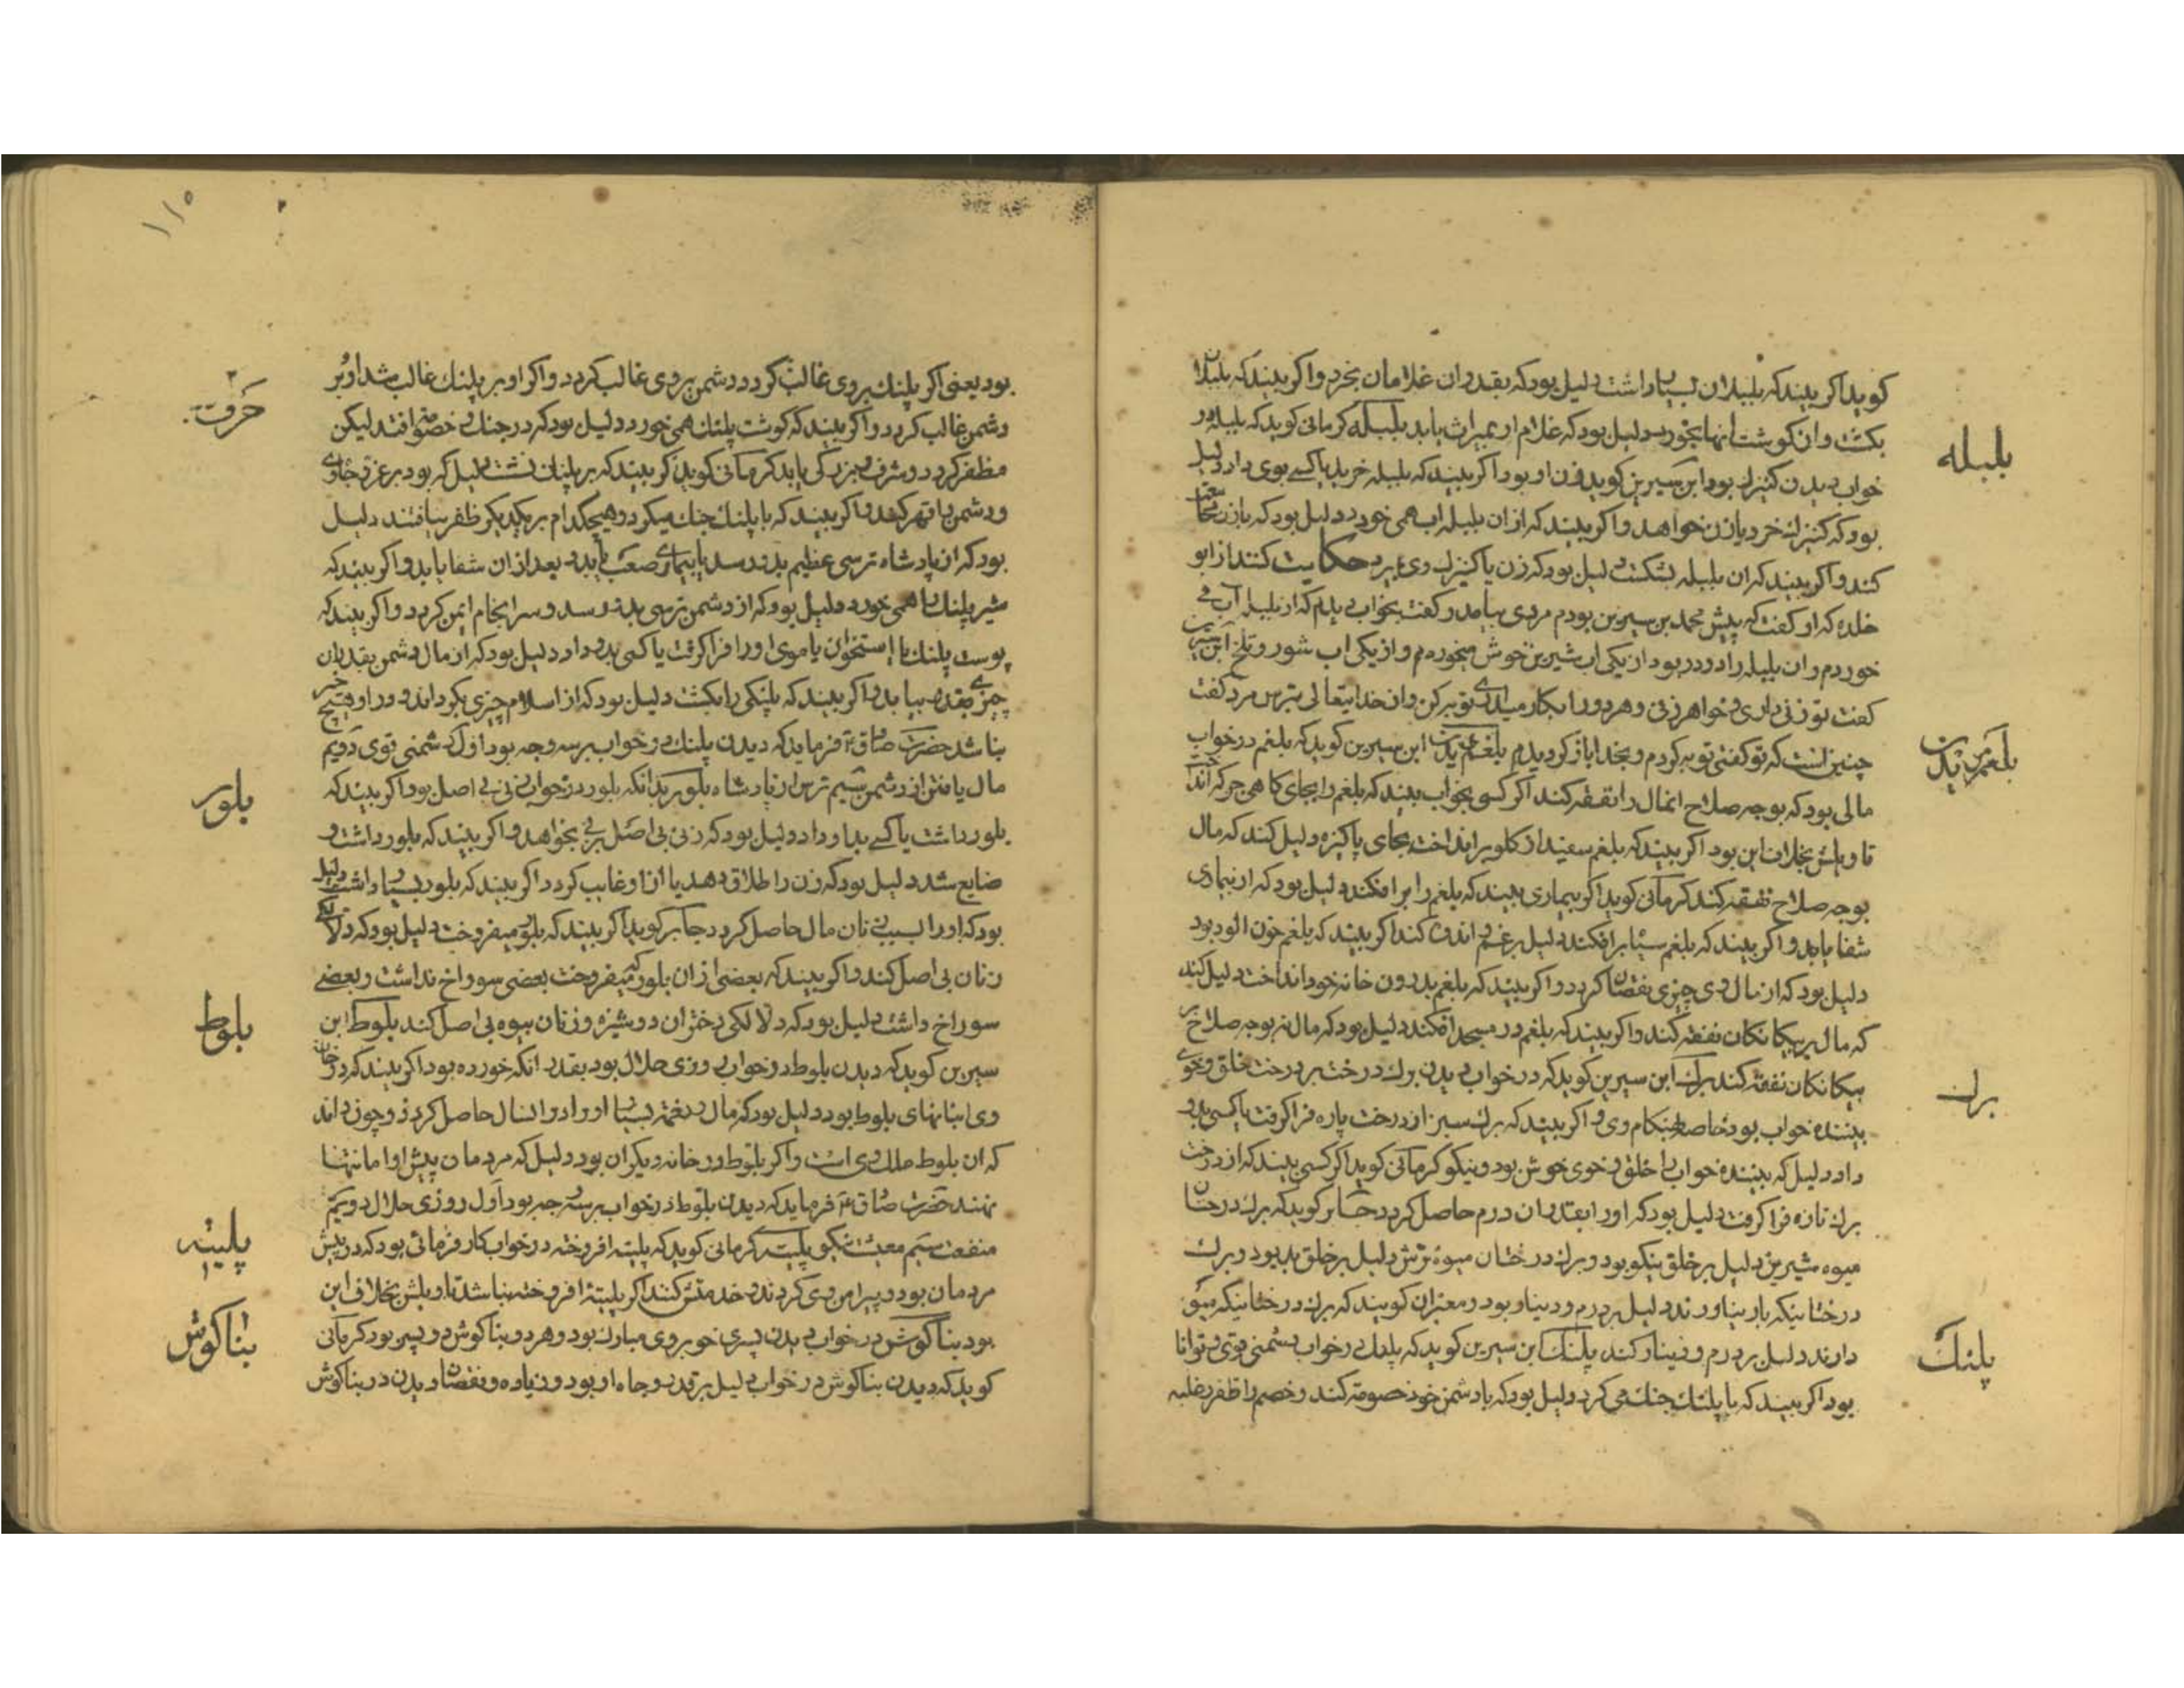 کوید اکر بیند که بلبلان بسیار داشت دلیل بود که بقدر ان غلامان بخرد و اکر بیند که بلبلان
بکشت و ان کوشت انها بخورد دلیل بود که غلام او بمیراث یابد بلبله کرمانی کوید که بلبله در
بلبله
خواب دیدن کنیزک بود ابن سیرین کوید زن او بود اکر بیند که بلبله خرید یا کسے بوی داد دلیل
بود که کنیزک خرد یا زن خواهد و اکر بیند که از ان بلبله اب همی خورد دلیل بود که با زن مجامعت
کند و اکر بیند که ان بلبله بشکست دلیل بود که زن یا کنیزک وی بمیرد حکایت کنند از ابو
خلده که او کفت که پیش محمد بن سیرین بودم مردی بیامد و کفت بخواب دیدم که از بلبله آب می
خوردم و ان بلبله را دو در بود از یکی اب شیرین خوش میخوردم و از یکی اب شور و تلخ ابن سیرین
کفت تو زنی داری و خواهر زنی و هر دو را بکار میداری توبه کن و از خدایتعالی بترس مرد کفت
چنین است که تو کفتی توبه کردم و بخدا باز کردیدم بلغم دیدن ابن سیرین کوید که بلغم در خواب
بلغم دیدن
مالی بود که بوجه صلاح انمال را نفقه کند اکر کسی بخواب بیند که بلغم را بجای کاهی چرک انداخت
تاویلش بخلاف این بود اکر بیند که بلغم سفید از کلو بر انداخت بجای پاکیزه دلیل کند که مال
بوجه صلاح نفقه کند کرمانی کوید اکر بیماری بیند که بلغم را بر افکند دلیل بود که از بیماری
شفا یابد و اکر بیند که بلغم سیاه بر افکند دلیل بر غم و اندوه کند اکر بیند که بلغم خون الود بود
دلیل بود که از مال وی چیزی نقصان کردد و اکر بیند که بلغم بدرون خانه خود انداخت دلیل کند
که مال بر بیکانکان نفقه کند و اکر بیند که بلغم در مسجد افکند دلیل بود که مال نه بوجه صلاح بر
بیکانکان نفقه کند برك ابن سیرین کوید که در خواب دیدن برك درخت بر درخت خلق و خوی
برك
بیننده خواب بود خاصه بهنکام وی و اکر بیند که برك سبز از درخت پاره فرا کرفت یا کسی بدو
داد دلیل که بیننده خواب با خلق و خوی خوش بود و نیکو کرمانی کوید اکر کسی بیند که از درخت
برك تازه فرا کرفت دلیل بود که او را بقدر ان درم حاصل کردد جابر کوید که برك درختان
میوه شیرین دلیل بر خلق نیکو بود و برك درختان میوۀ ترش دلیل بر خلق بد بود و برك
درختانیکه بار نیاورند دلیل بر درم و دینار بود و معبران کویند که برك درختانیکه میوه
دارند دلیل بر درم و دینار کند پلنك ابن سیرین کوید که پلنك در خواب دشمنی قوی و توانا
پلنك
بود اکر بیند که با پلنك جنك می کرد دلیل بود که با دشمن خود خصومة کند و خصم را ظفر و غلبه
۱۱۵
بود یعنی اکر پلنك بر وی غالب کردد دشمن بر وی غالب کردد و اکر او بر پلنك غالب شد او بر
حرفت
دشمن غالب کردد و اکر بیند که کوشت پلنك همی خورد دلیل بود که در جنك و خصومة افتد لیکن
مظفر کردد و شرف و بزرکی یابد کرمانی کوید اکر بیند که بر پلنك نشست دلیل که بود بر عز و جاه وی
و دشمن را قهر کند و اکر بیند که با پلنك جنك میکرد و هیچکدام بر یکدیکر ظفر نیافتند دلیل
بود که از پادشاه ترسی عظیم بدو رسد یا بیماری صعب یابد بعد از ان شفا یابد و اکر بیند که
شیر پلنك را همی خورد دلیل بود که از دشمن ترسی بدو رسد و سرانجام ایمن کردد و اکر بیند که
پوست پلنك یا استخوان یا موی او را فرا کرفت یا کسی بدو داد دلیل بود که از مال دشمن بقدر ان
نباشد حضرت صادق ع فرماید که دیدن پلنك در خواب بر سه وجه بود اول دشمنی قوی دویم
مال یافتن از دشمن سیم ترس از پادشاه بلور بدانکه بلور در خواب زنی بی اصل بود اکر بیند که
بلور
بلور داشت یا کسے بدو داد دلیل بود که زنی بی اصل بزنی بخواهد و اکر بیند که بلور داشت و
ضایع شد دلیل بود که زن را طلاق دهد یا از او غایب کردد اکر بیند که بلور بسیار داشت دلیل
بود که او را بسبب زنان مال حاصل کردد جابر کوید اکر بیند که بلور میفروخت دلیل بود که دلالکی
زنان بی اصل کند و اکر بیند که بعضی از ان بلور که میفروخت بعضی سوراخ نداشت و بعضے
سوراخ داشت دلیل بود که دلالکی دختران دوشیزه و زنان بیوه بی اصل کند بلوط ابن
بلوط
سیرین کوید که دیدن بلوط در خواب روزی حلال بود بقدر انکه خورده بود اکر بیند که در خانه
وی انبانهای بلوط بود دلیل بود که مال و نعمة بسیار او را در انسال حاصل کردد و چون داند
که ان بلوط ملك وی است و اکر بلوط در خانه دیکران بود دلیل که مردمان پیش او امانتها
نهند حضرت صادق ع فرماید که دیدن بلوط در خواب بر سه وجه بود اول روزی حلال دویم
منفعت سیم معیشت نیکو پلیته کرمانی کوید که پلیته افروخته در خواب کار فرمائی بود که در پیش
پلیته
مردمان بود و پیرامن وی کردند و خدمتش کنند اکر پلیتۀ افروخته نباشد تاویلش بخلاف این
بود بناکوش در خواب دیدن پسری خوبروی مبارك بود و هر دو بناکوش دو پسر بود کرمانی
بناکوش
کوید که دیدن بناکوش در خواب دلیل بر قدر و جاه او بود و زیاده و نقصان دیدن در بناکوش